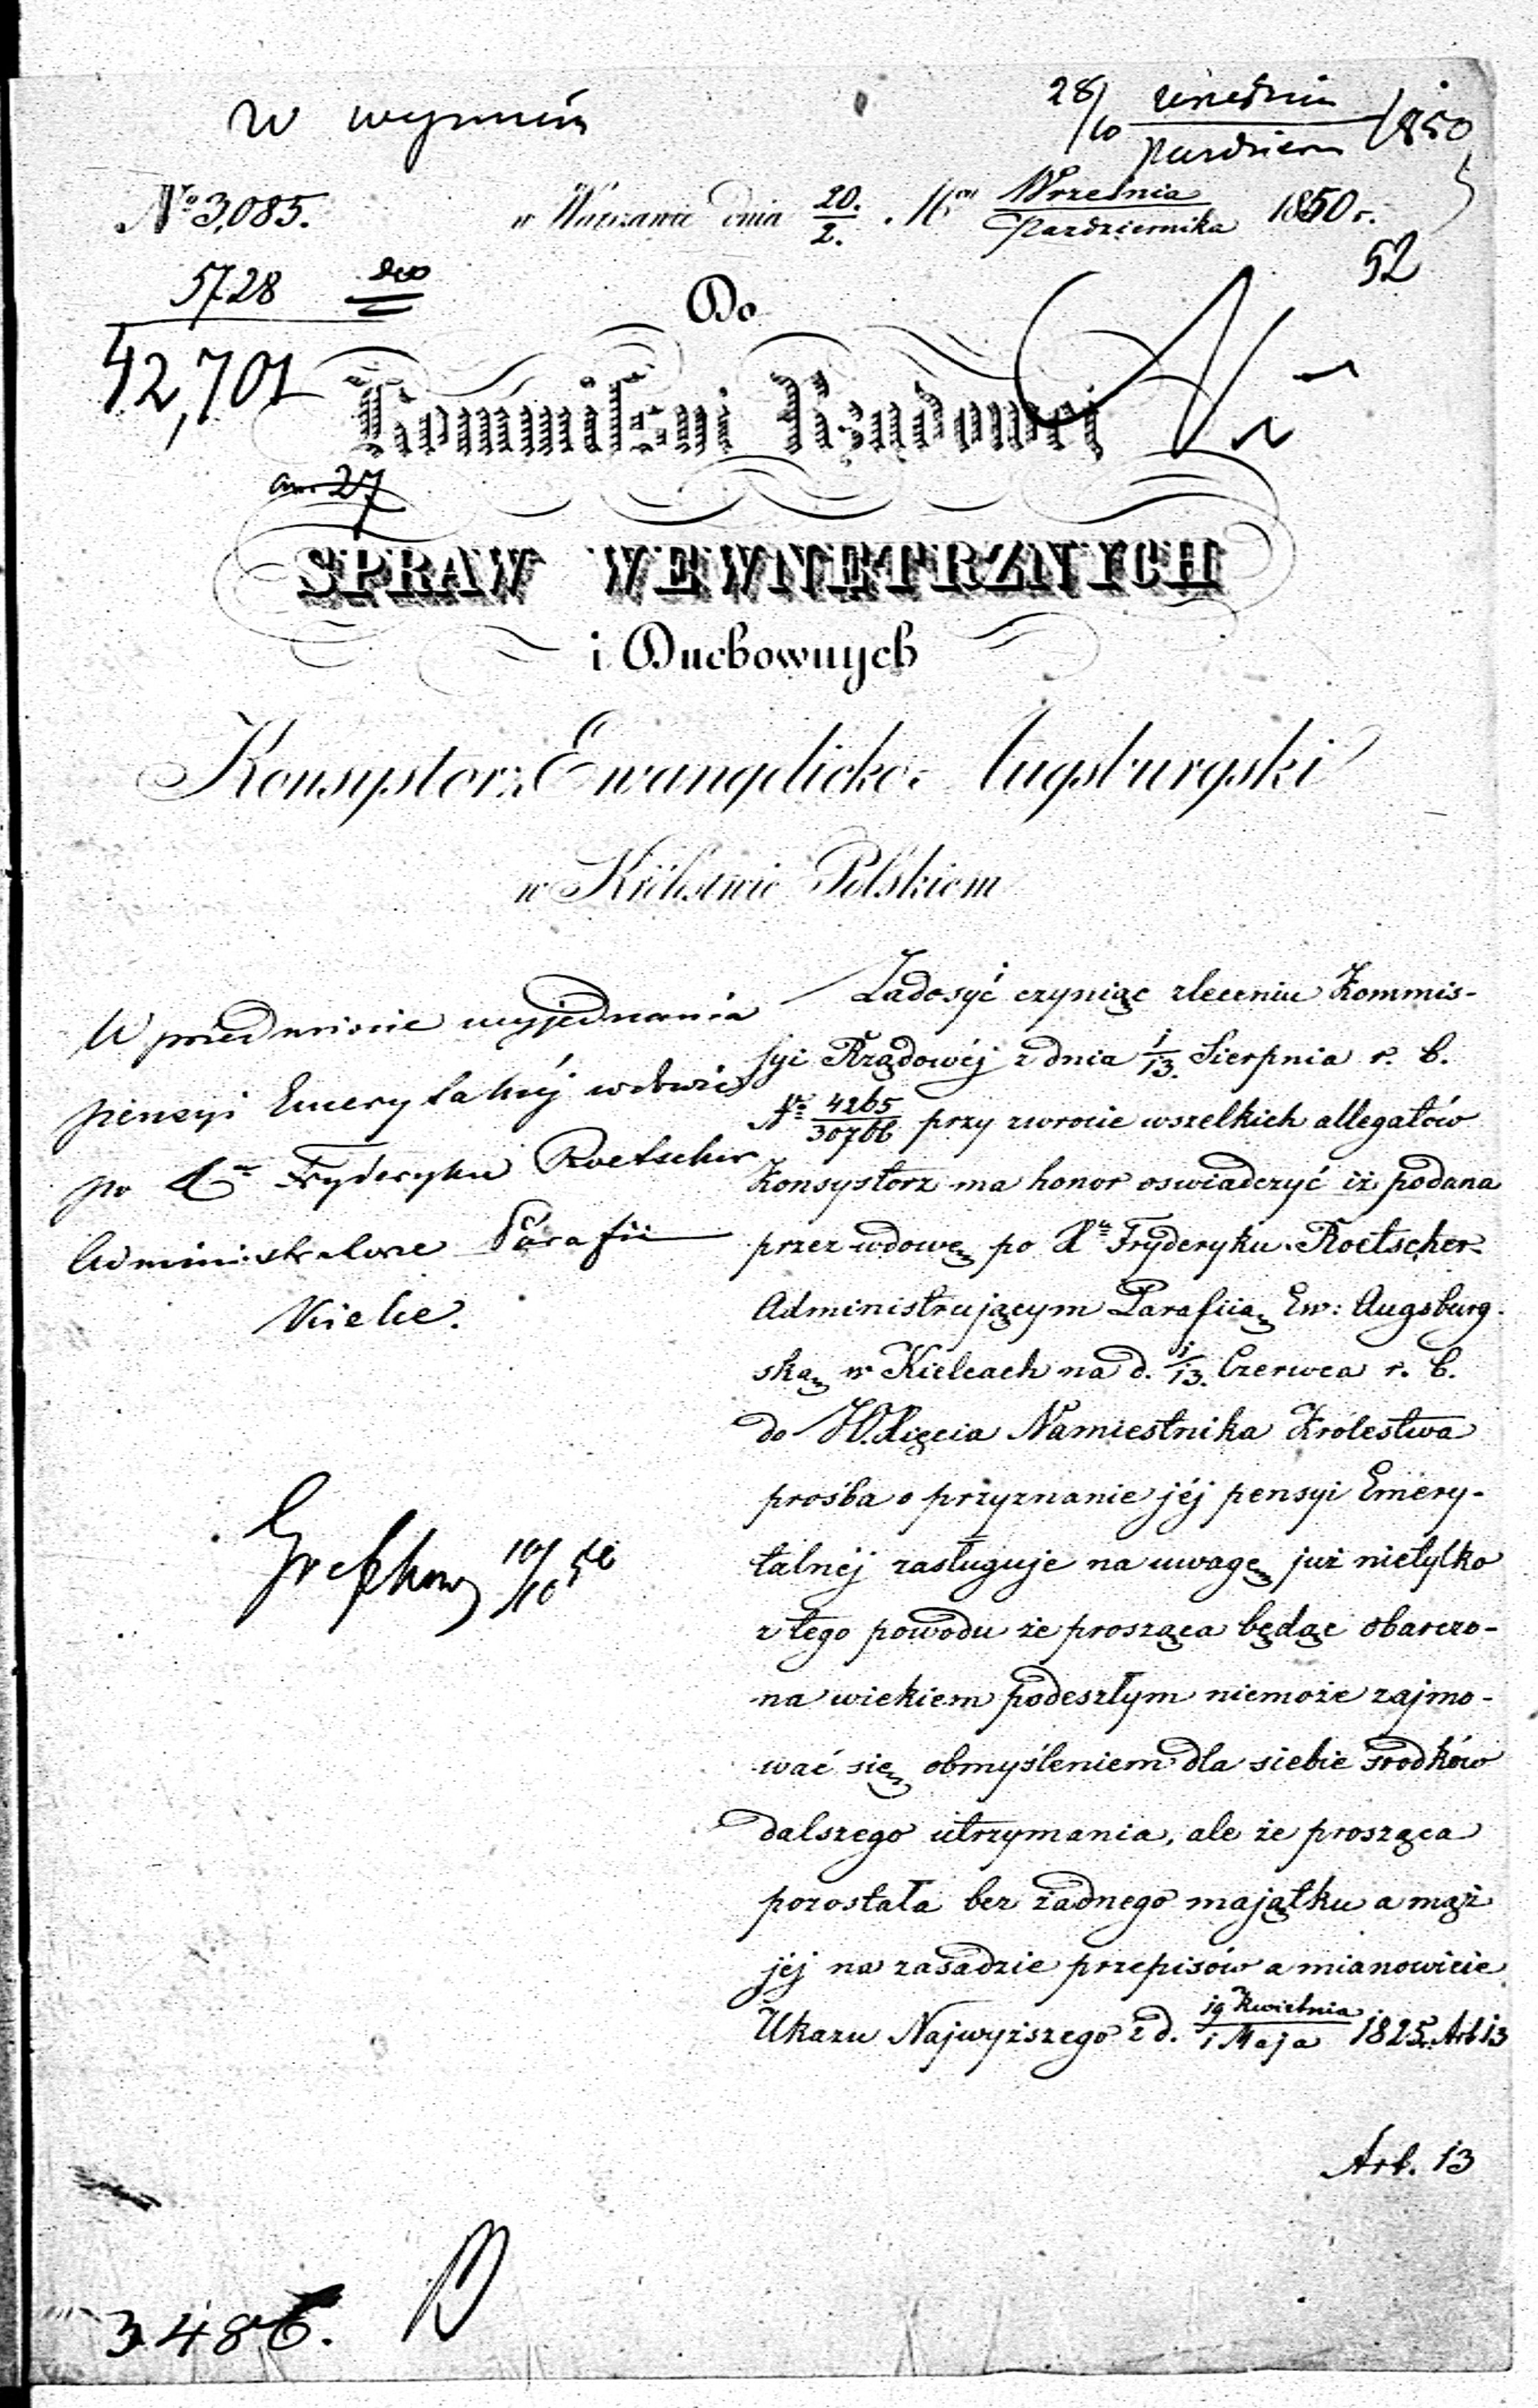 W
28/10 Września / Październ 1850
№ 3,085. w Warszawie dnia 20./2. Mca Września / Października 1850 r.
52
5728
Do
42,701
Kommissyi Rządowej
27
SPRAW WEWNĘTRZNYCH
i Duchownych
Konsystorz Ewangelicko-Augsburgski
w Królestwie Polskiem
W przedmiocie wyjednania
pensyi Emerytalnéj wdowie
po Xs Fryderyku Roetscher
Administratorze Parafii
Kielce.
Zadosyć czyniąc zleceniu Kommis-
syi Rządowéj z dnia 1/13. Sierpnia r. b.
№ 4265/30766 przy zwrocie wszelkich allegatów
Konsystorz ma honor oswiadczyć iż podana
przez wdowę po Xs Fryderyku Roetscher
Administrującym Parafiią Ew: Augsburg-
ską w Kielcach na d. 1/13. Czerwca r. b.
do JO. Xięcia Namiestnika Królestwa
prośba o przyznanie jéj pensyi Emery-
talnéj zasługuje na uwagę już nietylko
z tego powodu że prosząca będąc obarczo-
na wiekiem podeszłym niemoże zajmo-
wać się obmyśleniem dla siebie środków
dalszego utrzymania, ale że prosząca
pozostała bez żadnego majątku a mąż
jéj na zasadzie przepisów a mianowicie
Ukazu Najwyższego z d. 19 Kwietnia / 1 Maja 1825 r. Art 13
Art. 13
3486.